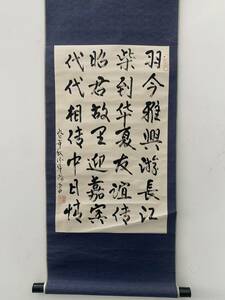 羽今雅興游長江
柴到华夏友誼传
昭君故里迎嘉宾
代代相传中日情